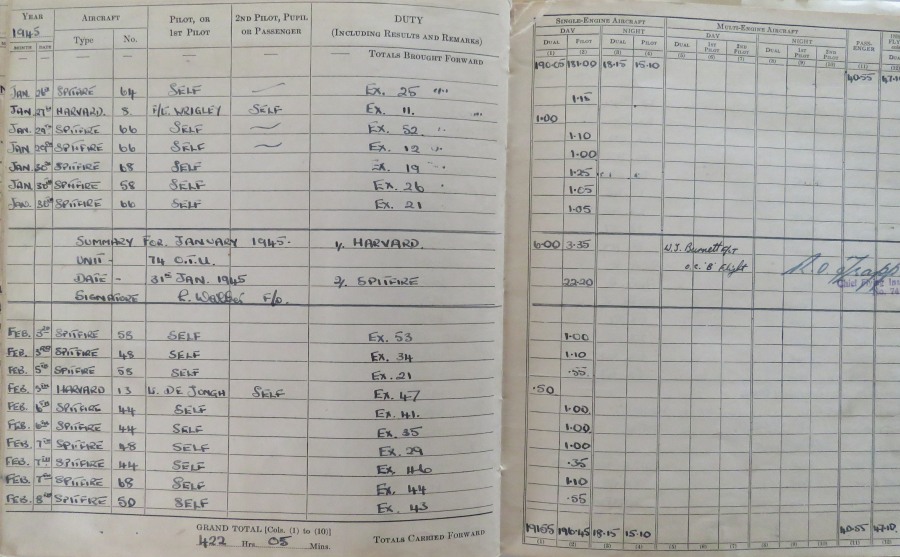 YEAR AIRCRAFT PILOT, OR 2ND PILOT, PUPIL DUTY
1945 1ST PILOT OR PASSENGER (INCLUDING RESULTS AND REMARKS)
MONTH DATE Type No.
— — — — — — TOTALS BROUGHT FORWARD
JAN 26th SPITFIRE 64 SELF — Ex. 25 "
JAN 27th HARVARD. 8. F/L. WRIGLEY SELF Ex. 11.
JAN. 29th SPITFIRE 66 SELF — Ex. 52.
JAN 29th SPITFIRE 66 SELF — Ex. 12
JAN. 30th SPITFIRE 68 SELF Ex. 19
JAN. 30th SPITFIRE 58 SELF Ex. 26
JAN. 30th SPITFIRE 66 SELF Ex. 21
SUMMARY FOR. JANUARY 1945. 1/. HARVARD.
UNIT - 74 O.T.U.
DATE - 31st JAN. 1945 2/. SPITFIRE
SIGNATURE F/O.
FEB. 3rd SPITFIRE 55 SELF Ex. 53
FEB. 3rd SPITFIRE 48 SELF Ex. 34
FEB. 5th SPITFIRE 55 SELF Ex. 21
FEB. 5th HARVARD 13 DE JONGH SELF Ex. 47
FEB. 6th SPITFIRE 44 SELF Ex. 41.
FEB. 6th SPITFIRE 44 SELF Ex. 35
FEB. 7th SPITFIRE 48 SELF Ex. 29
FEB. 7th SPITFIRE 44 SELF Ex. 46
FEB. 7th SPITFIRE 68 SELF Ex. 44
FEB. 8th SPITFIRE 50 SELF Ex. 43
GRAND TOTAL [Cols. (1) to (10)]
422 Hrs. 05 Mins. TOTALS CARRIED FORWARD
SINGLE-ENGINE AIRCRAFT MULTI-ENGINE AIRCRAFT
DAY NIGHT DAY NIGHT PASS-ENGER
DUAL PILOT DUAL PILOT DUAL 1ST PILOT 2ND PILOT DUAL 1ST PILOT 2ND PILOT
(1) (2) (3) (4) (5) (6) (7) (8) (9) (10) (11)
190.05 181.00 18.15 15.10 40.55 47.10
1.15
1.00
1.10
1.00
1.25
1.05
1.05
6.00 3.35 W.J. Burnett F/Lt
o.c. 'B' Flight
22.20 Chief Flying
No. 74
1.00
1.10
.55
.50
1.00
1.00
1.00
.35
1.10
.55
191.55 196.45 18.15 15.10 40.55 47.10
(1) (2) (3) (4) (5) (6) (7) (8) (9) (10) (11) (12)